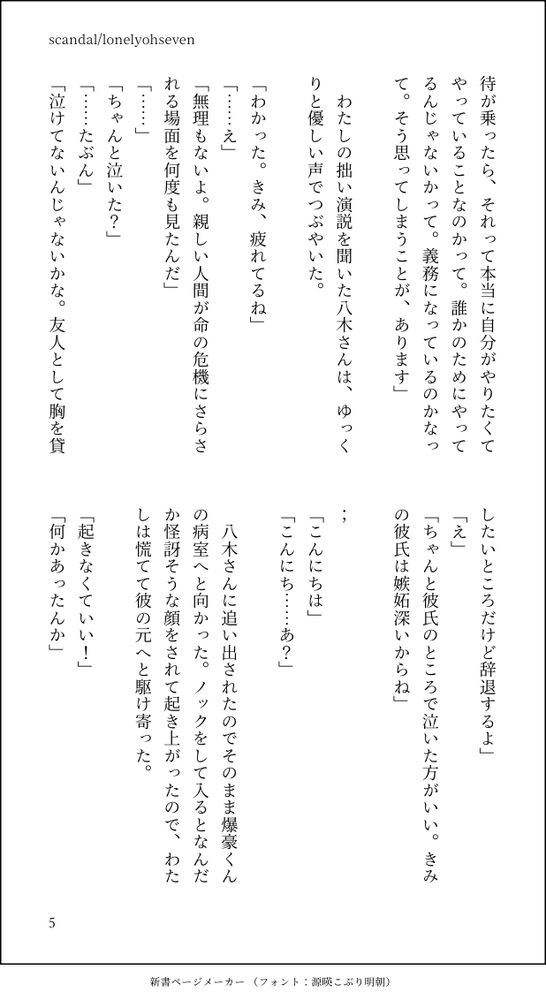 scandal/lonelyohseven
待が乗ったら、それって本当に自分がやりたくて
やっていることなのかって。誰かのためにやって
るんじゃないかって。義務になっているのかなっ
て。そう思ってしまうことが、あります」
わたしの拙い演説を聞いた八木さんは、ゆっく
りと優しい声でつぶやいた。
「わかった。きみ、疲れてるね」
「……え」
「無理もないよ。親しい人間が命の危機にさらさ
れる場面を何度も見たんだ」
「……」
「ちゃんと泣いた？」
「……たぶん」
「泣けてないんじゃないかな。友人として胸を貸
したいところだけど辞退するよ」
「え」
「ちゃんと彼氏のところで泣いた方がいい。きみ
の彼氏は嫉妬深いからね」
；
「こんにちは」
「こんにち……あ？」
八木さんに追い出されたのでそのまま爆豪くん
の病室へと向かった。ノックをして入るとなんだ
か怪訝そうな顔をされて起き上がったので、わた
しは慌てて彼の元へと駆け寄った。
「起きなくていい！」
「何かあったんか」
5
新書ページメーカー（フォント：源暎こぶり明朝）